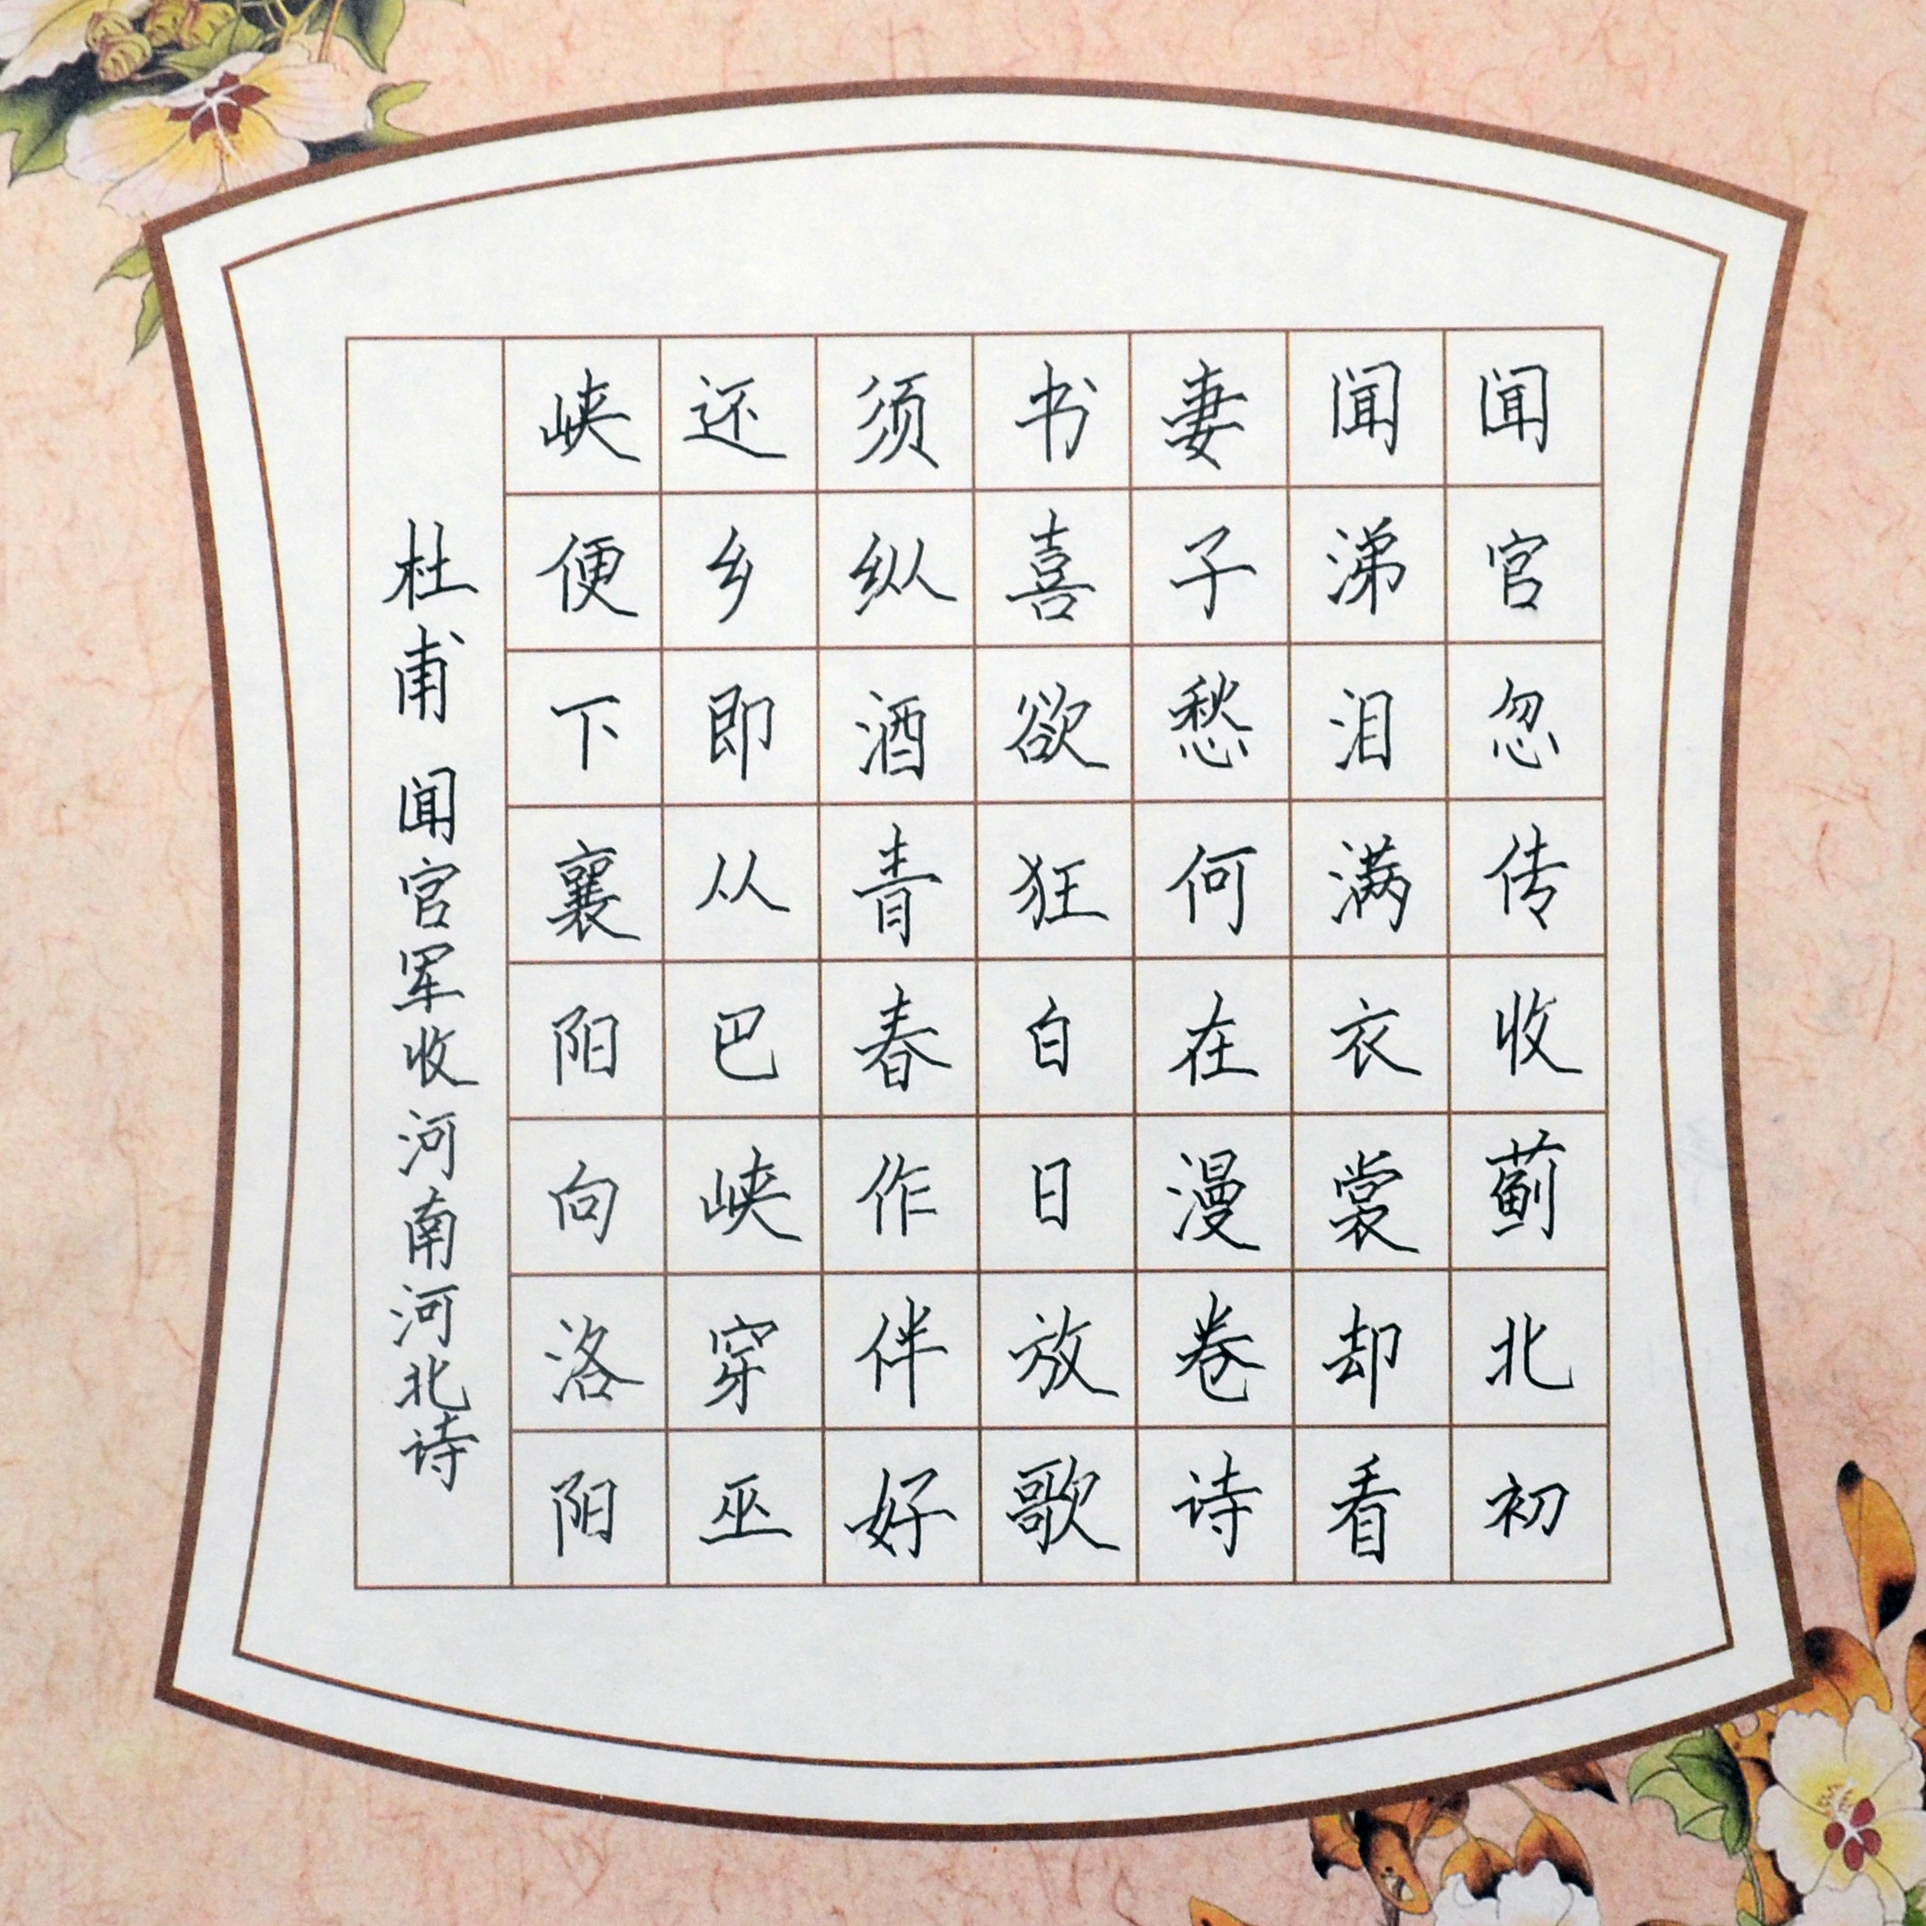 闻官忽传收蓟北初
闻涕泪满衣裳却看
妻子愁何在漫卷诗
书喜欲狂白日放歌
须纵酒青春作伴好
还乡即从巴峡穿巫
峡便下襄阳向洛阳
杜甫 闻官军收河南河北诗